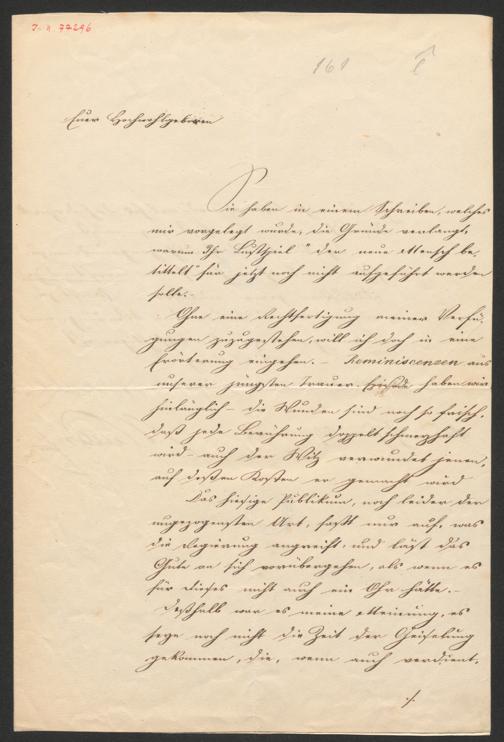 J. N. 77296
161
Euer Hochwohlgeboren
Sie haben in einem Schreiben, welches
mir vorgelegt wurde, die Gründe verlangt,
warum Ihr Lustspiel "der neue Mensch be-
tittelt" für jetzt noch nicht aufgeführt werden
solle.-
Ohne eine Rechtfertigung meiner Verfü-
gungen zuzugestehen, will ich doch in eine
Erörterung eingehen. - Reminiscenzen aus
unserer jüngsten Trauer-Episode haben wir
hinlänglich - die Wunden sind noch so frisch,
daß jede Berührung doppelt schmerzhaft
wird - auch der Witz verwundet jenen,
auf dessen Kosten er gemacht wird
Das hiesige Publikum, noch leider der
ungezogensten Art, faßt nur auf, was
die Regierung angreift, und läßt das
Gute an sich vorübergehen, als wenn es
für dieses nicht auch ein Ohr hätte.-
Deßhalb war es meine Meinung, es
seye noch nicht die Zeit der Geißelung
gekommen, die, wenn auch verdient,
./.